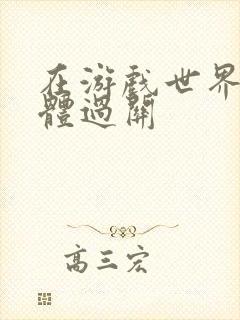 在游戲世界
體過關
高三宏